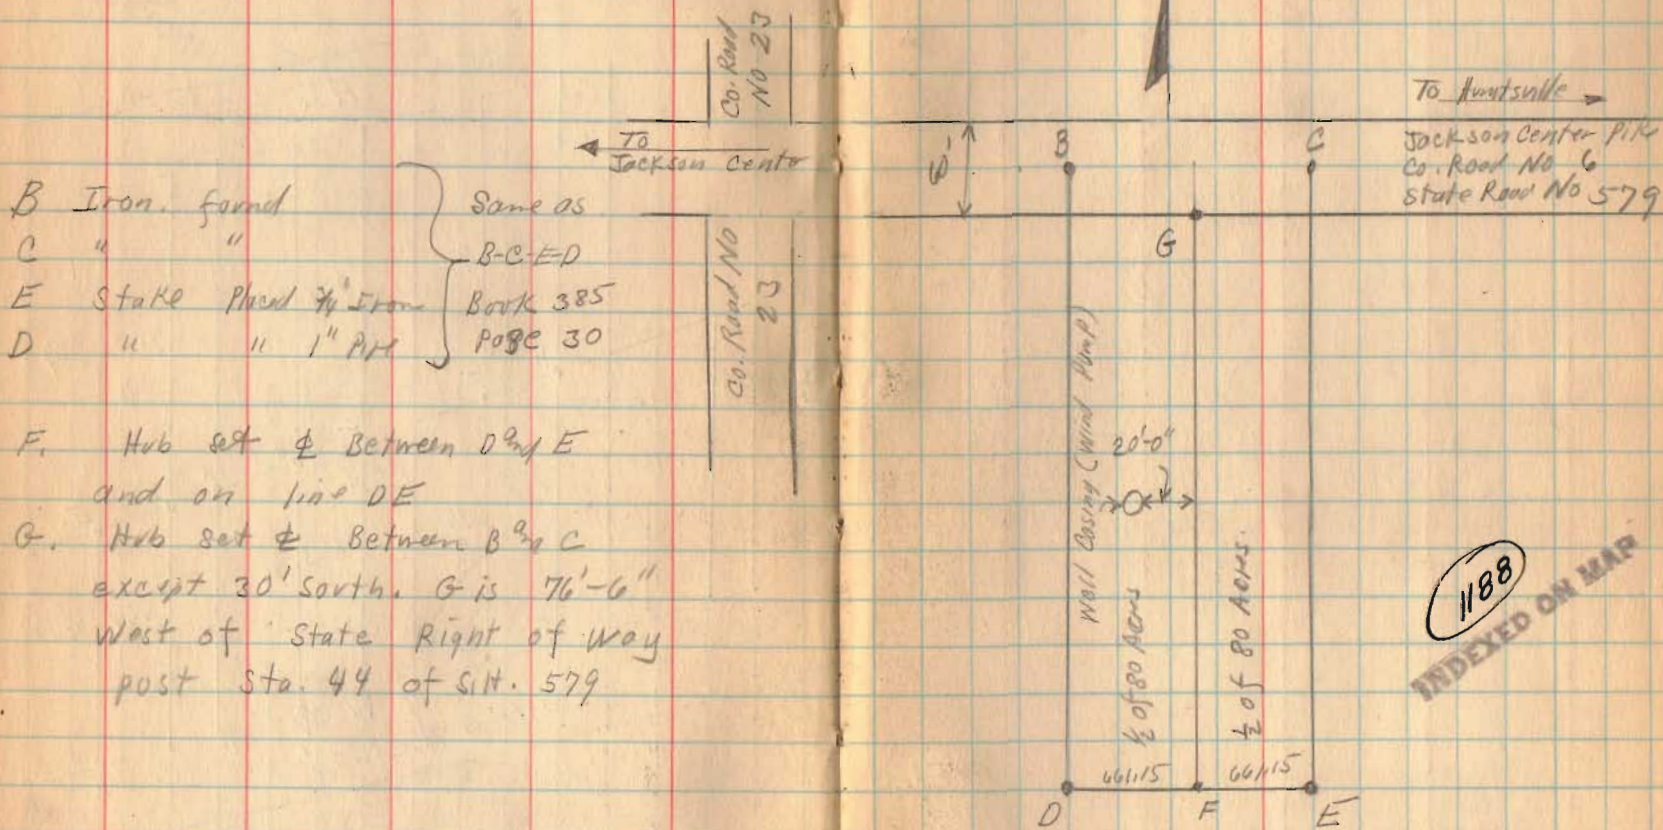 B Iron. found
C " "
E Stake Placed 3/4" Iron
D " " 1" Pipe
Same as
B-C-E-D
Book 385
Page 30
F. Hub set ℄ Between D and E
and on line DE
G. Hub set ℄ Between B and C
except 30' South. G is 76'-6"
West of State Right of Way
post Sta. 44 of S.H. 579
Co. Road
No 23
To
Jackson Center
Co. Road No
23
To Huntsville
Jackson Center Pike
Co. Road No 6
State Road No 579
B
C
G
Well Casing (Wind Pump)
20'-0"
1/2 of 80 Acres
1/2 of 80 Acres.
661.15
661.15
D
F
E
1188
INDEXED ON MAP